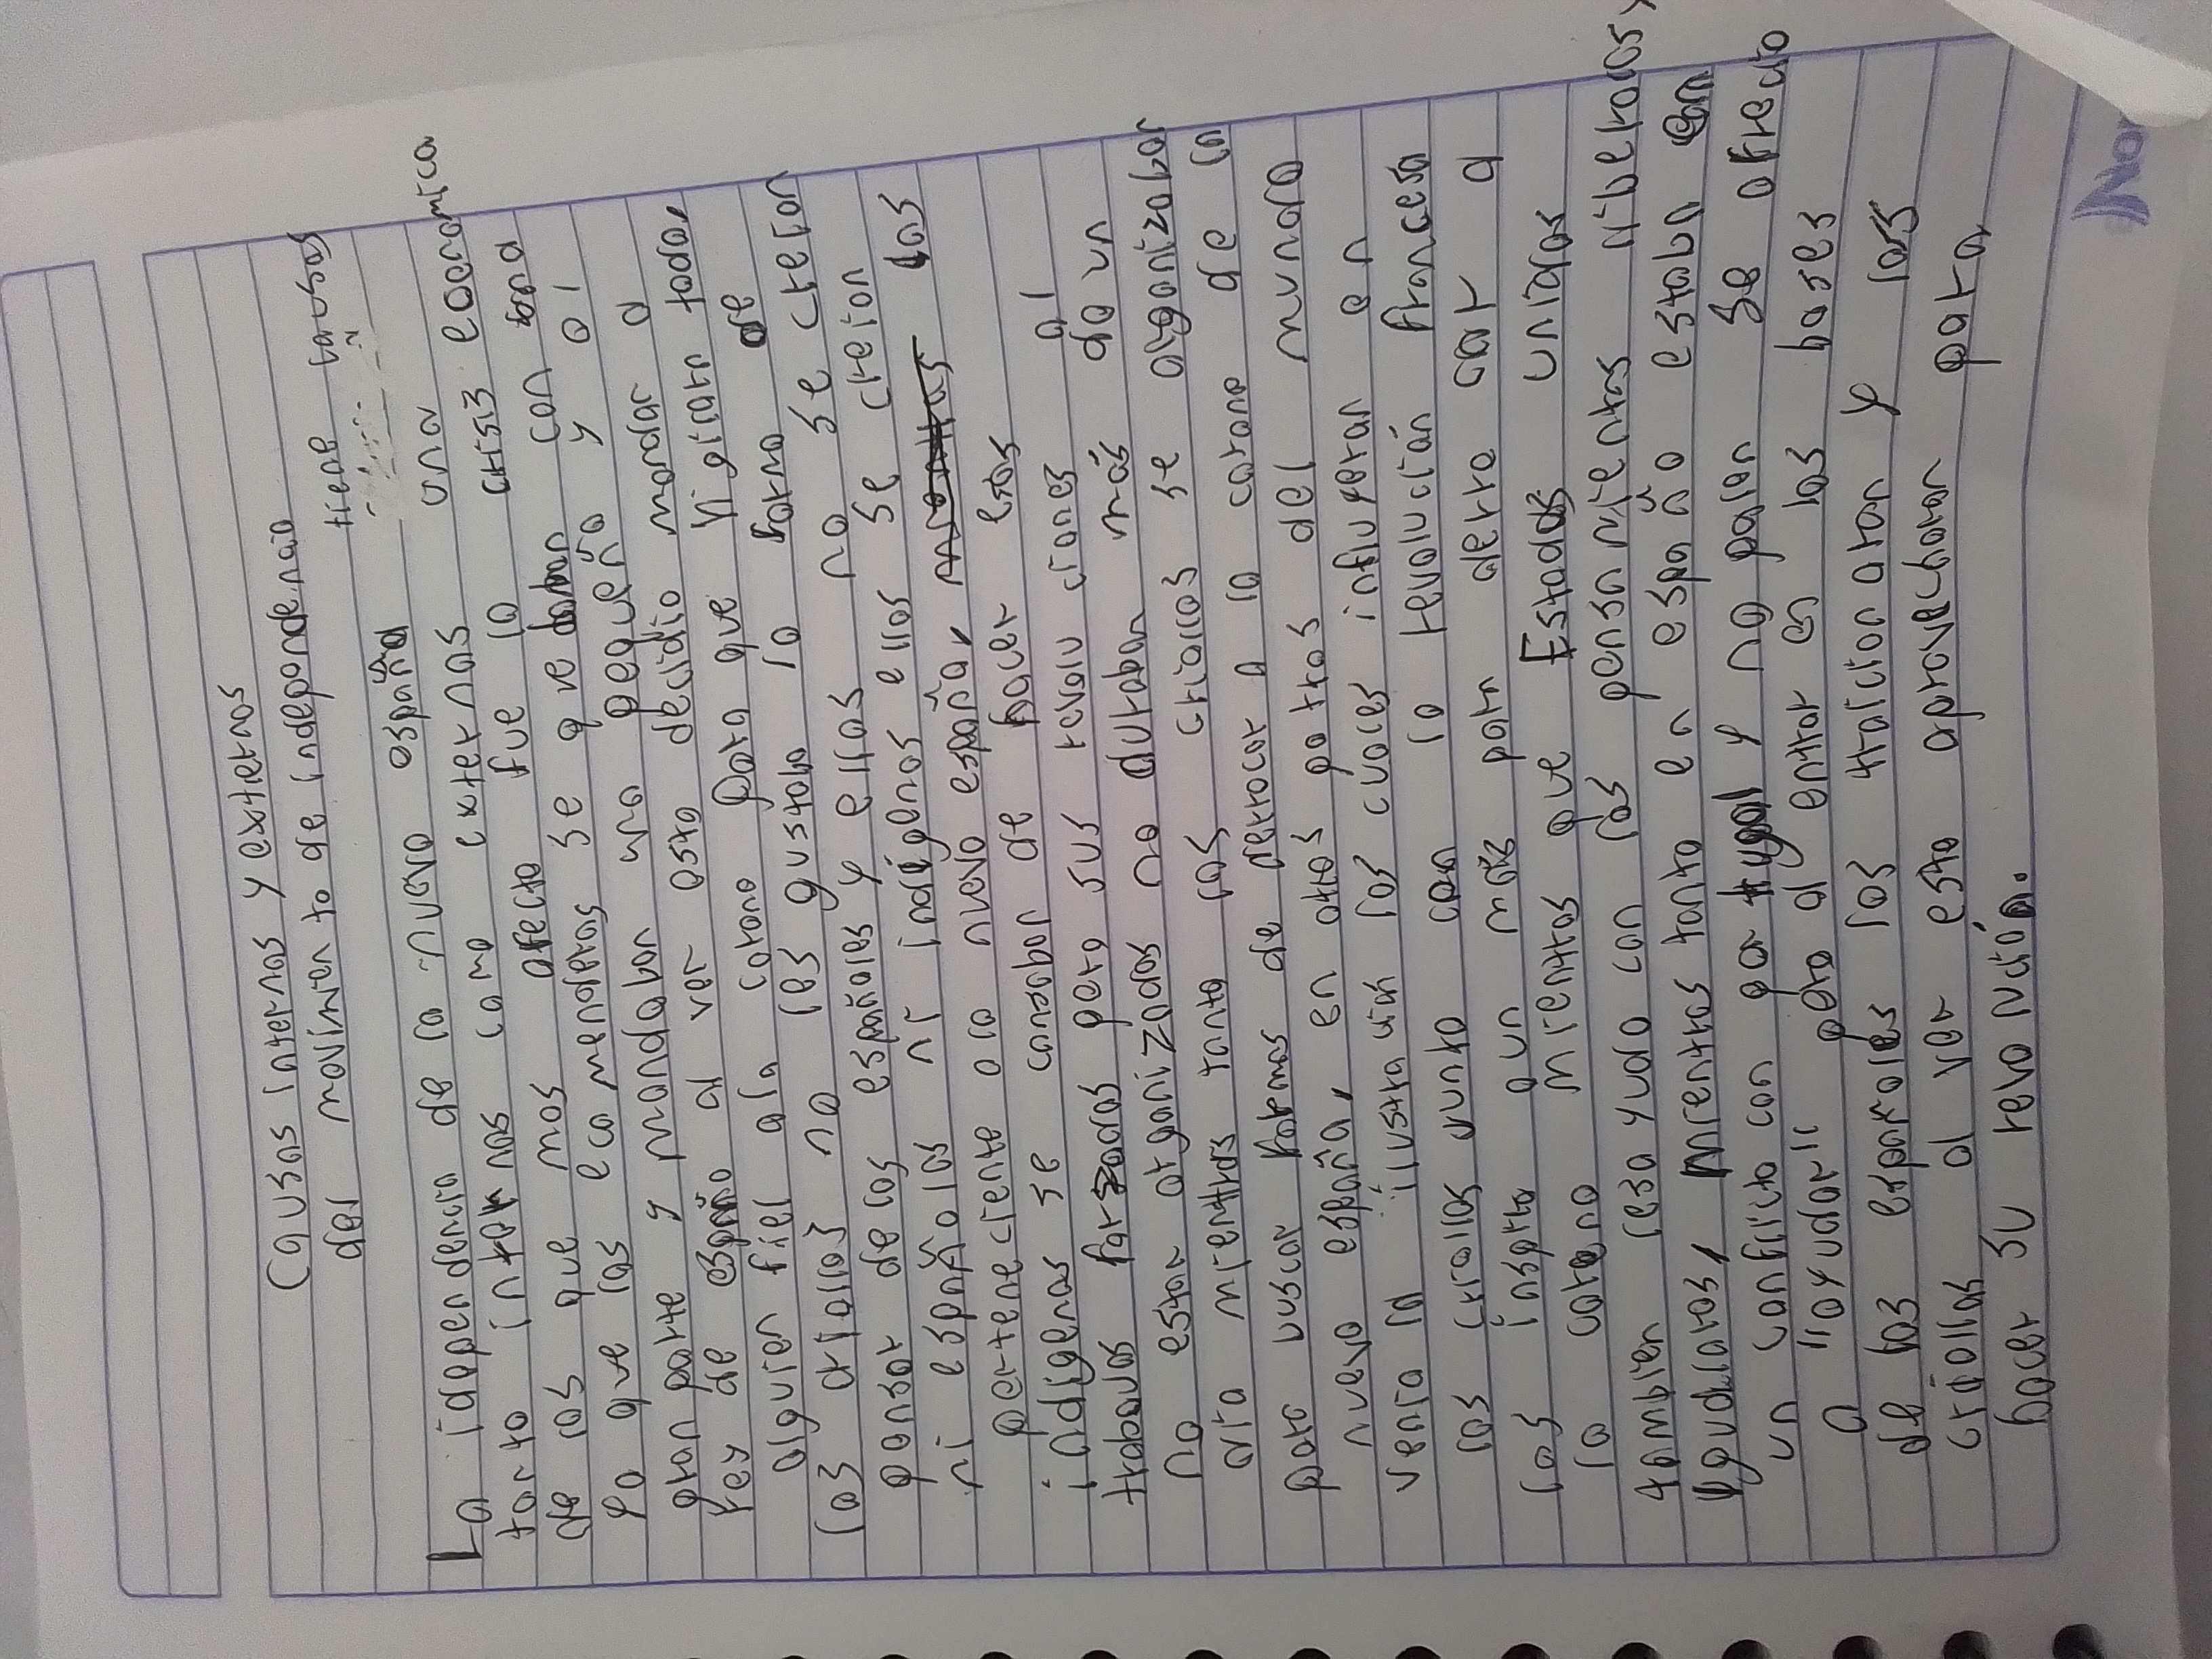 Causas internas y externas
del movimiento de independencia
tiene causas
La idependencia de la nueva españa una
tanto internas como externas crisis economica
de las que mas afecto fue la
Lo que las ecomenderos se quedaban con una
gran parte y mandaban una pequeña y el
rey de españa al ver esto decidio mandar a
alguien fiel ala corona para que vigilara todo,
los criollos no les gustaba la forma de
pensar de los españoles y ellos no se creian
ni españoles ni indigenas ellos se creian
perteneciente a la nueva españa, los
indigenas se cansaban de hacer esos
trabajos forzados pero sus revoluciones al
no estar organizados no duraban más de un
dia mientras tanto los criollos se organizabar
para buscar formas de derrocar a la corona de la
nueva españa, en otras partes del mundo
venia la ilustración las cuales influyeran en
los criollos junto con la revolución francesa
las inspiro aun más para derrocar a
la corona mientras que Estados unidos
tambien les ayudo con los pensamientos liberados y
igualdarios, Mientras tanto en españa estaba en
un conflicto con portugal y napoleon se ofrecio
a "ayudar" pero al entrar en las bases
de los españoles los traicionaran y los
criollos al ver esto aprovecharon para
hacer su revolución.